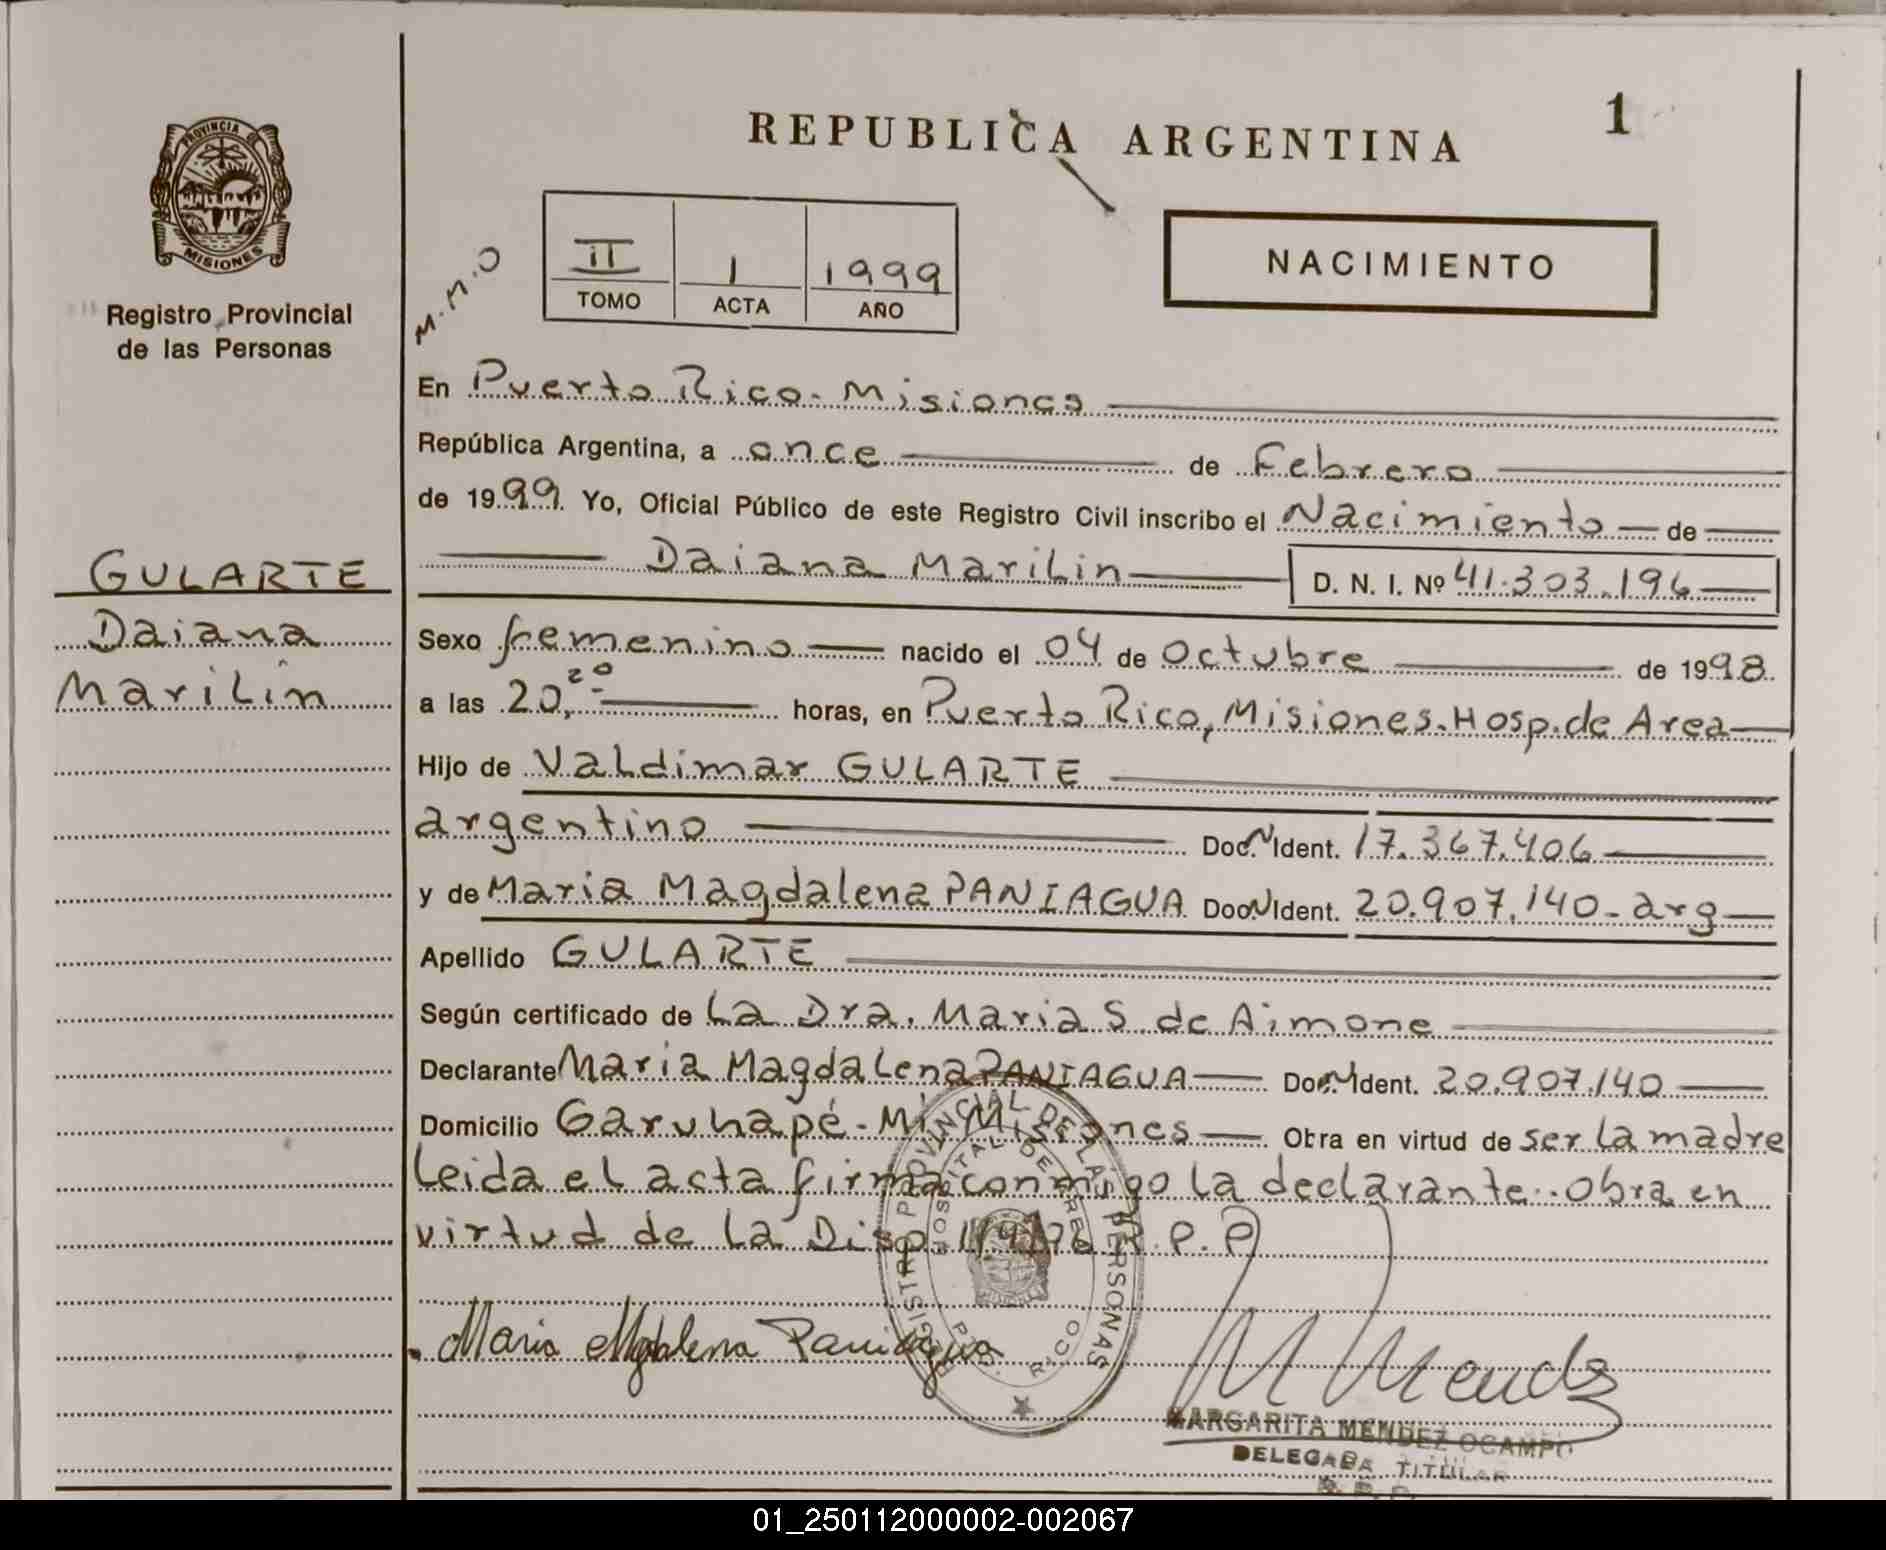 REPUBLICA ARGENTINA
1
PROVINCIA DE
MISIONES
Registro Provincial
de las Personas
M.M.O
II
TOMO
1
ACTA
1999
AÑO
NACIMIENTO
En Puerto Rico - Misiones
República Argentina, a once de Febrero
de 1999 Yo, Oficial Público de este Registro Civil inscribo el Nacimiento de
Daiana Marilin D. N. I. Nº 41.303.196
GULARTE
Daiana
Marilin
Sexo femenino nacido el 04 de Octubre de 1998
a las 20,20 horas, en Puerto Rico, Misiones. Hosp. de Area
Hijo de Valdimar GULARTE
argentino Doc. N Ident. 17.367.406
y de Maria Magdalena PANIAGUA Doc. N Ident. 20.907.140 - arg
Apellido GULARTE
Según certificado de La Dra. Maria S de Aimone
Declarante Maria Magdalena PANIAGUA Doc. N Ident. 20.907.140
Domicilio Garuhapé - Mi Misiones Obra en virtud de ser la madre
Leida el acta firma conmigo la declarante.. Obra en
virtud de la Disp. R.P.P
REGISTRO PROVINCIAL DE LAS PERSONAS
HOSPITAL DE AREA
PTO. RICO
Maria Magdalena Paniagua
M Mendez
MARGARITA MENDEZ OCAMPO
DELEGADA TITULAR
R. P. P.
01_250112000002-002067